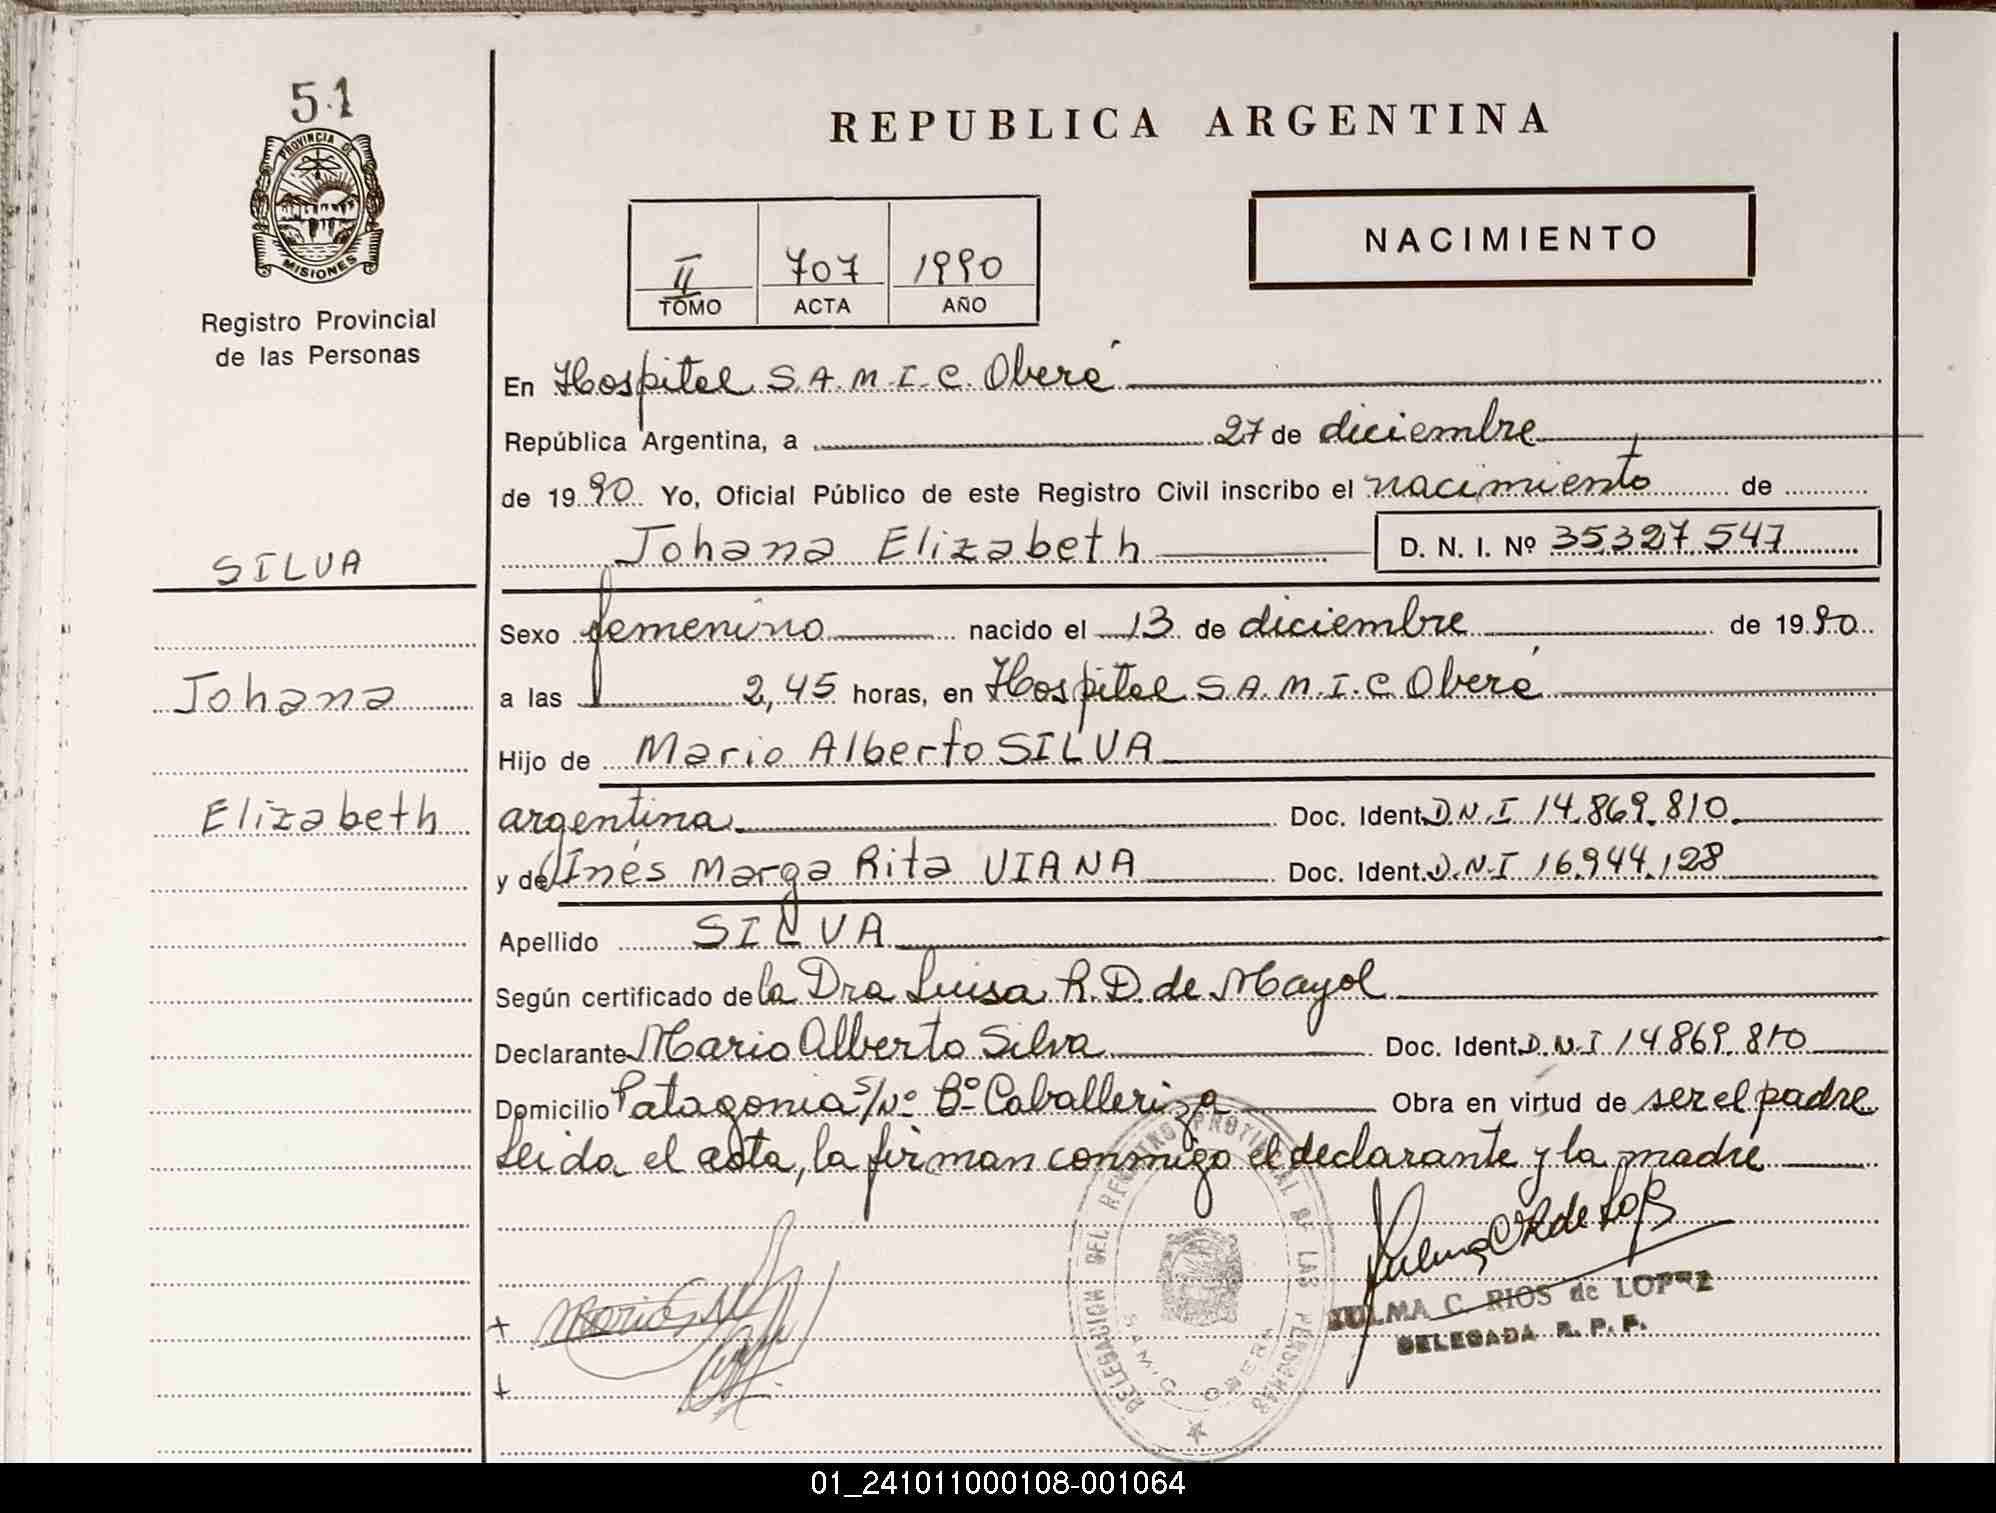 51
PROVINCIA DE
MISIONES
Registro Provincial
de las Personas
SILVA
Johana
Elizabeth
REPUBLICA ARGENTINA
II 707 1990
TOMO ACTA AÑO
NACIMIENTO
En Hospital S.A.M.I.C. Oberá
República Argentina, a 27 de diciembre
de 1990 Yo, Oficial Público de este Registro Civil inscribo el nacimiento de
Johana Elizabeth D. N. I. Nº 35327.547
Sexo femenino nacido el 13 de diciembre de 1990
a las 2,45 horas, en Hospital S.A.M.I.C Oberá
Hijo de Mario Alberto SILVA
argentina Doc. Ident. D.N.I 14.869.810
y de Inés MargaRita VIANA Doc. Ident. D.N.I 16.944.128
Apellido SILVA
Según certificado de la Dra Luisa R.D. de Mayol
Declarante Mario Alberto Silva Doc. Ident. D.N.I 14869.810
Domicilio Patagonia s/Nº Bº Caballeriza Obra en virtud de ser el padre
Leida el acta, la firman conmigo el declarante y la madre
DELEGACION DEL REGISTRO PROVINCIAL DE LAS PERSONAS
SAMIC OBERA
ZULMA C. RIOS de LOPEZ
DELEGADA R. P. P.
01_241011000108-001064